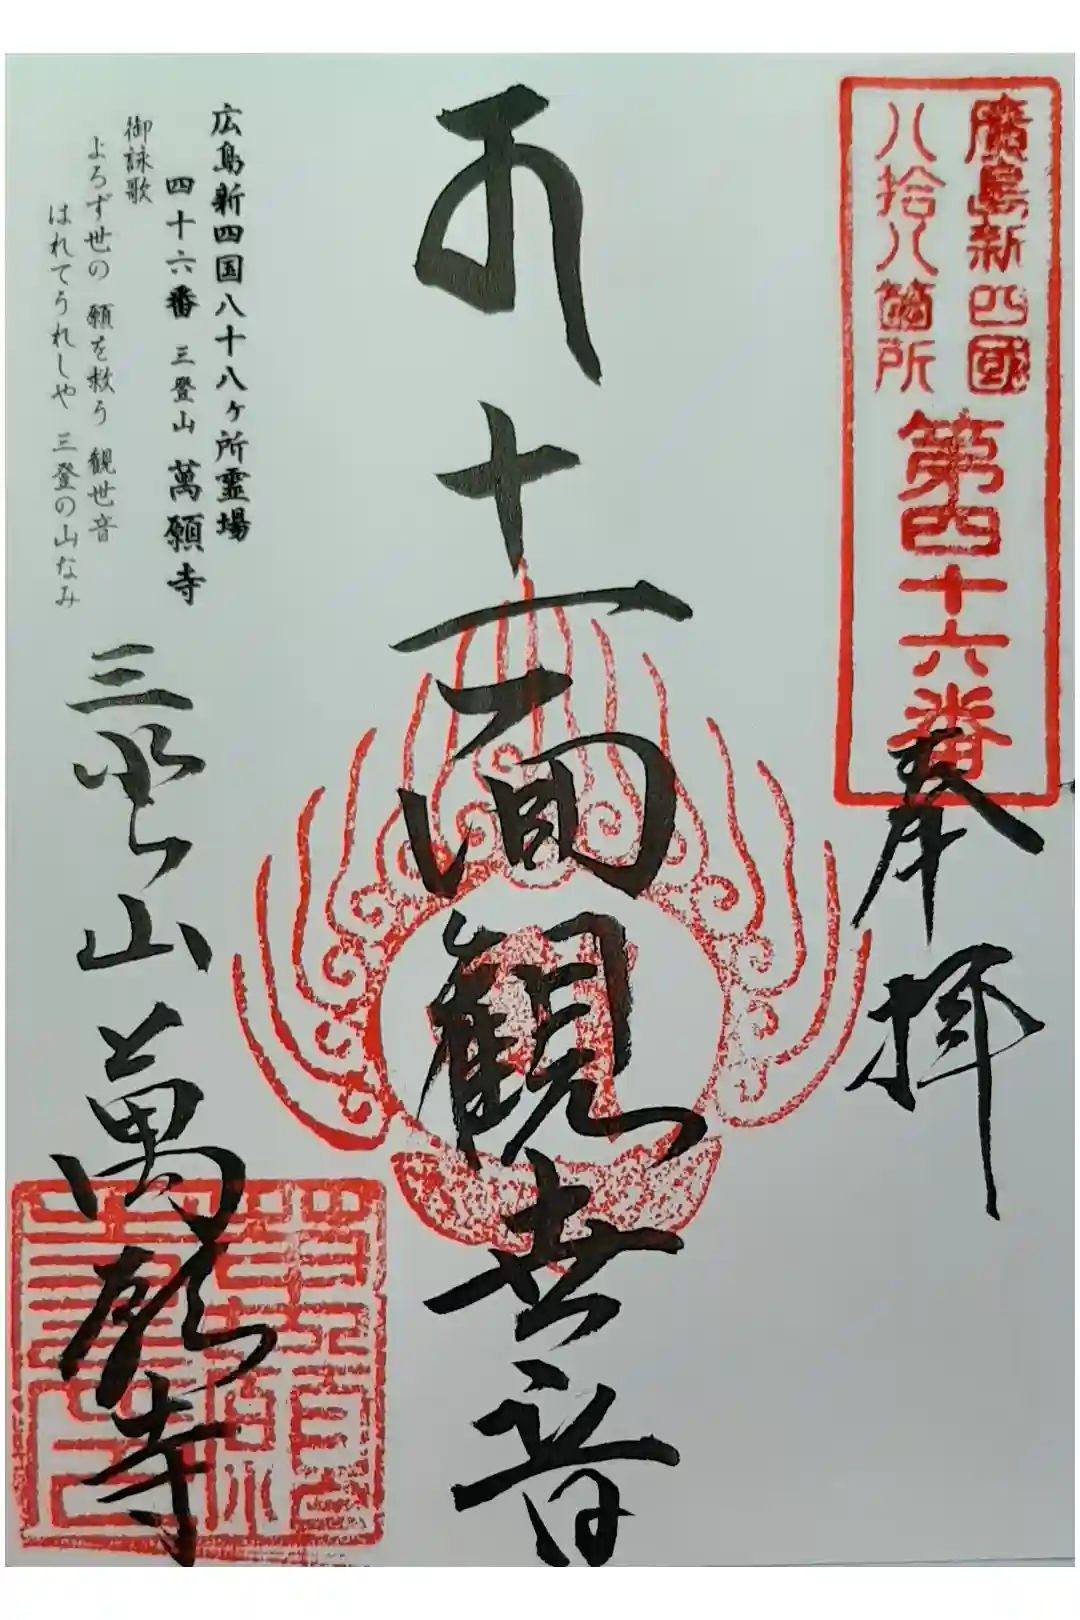 廣島新四國
八拾八箇所
第四十六番
奉拝
十一面観世音
広島新四国八十八ヶ所霊場
四十六番 三登山 萬願寺
御詠歌
よろず世の 願を救う 観世音
はれてうれしや 三登の山なみ
三登山萬願寺